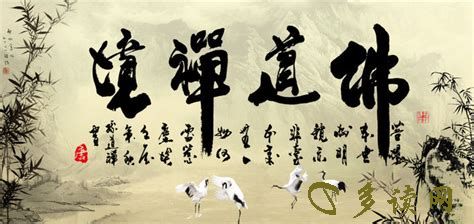 佛道禪境
菩提
本無
樹明
鏡亦
非臺
本來
無一
物何
處惹
塵埃
多读网